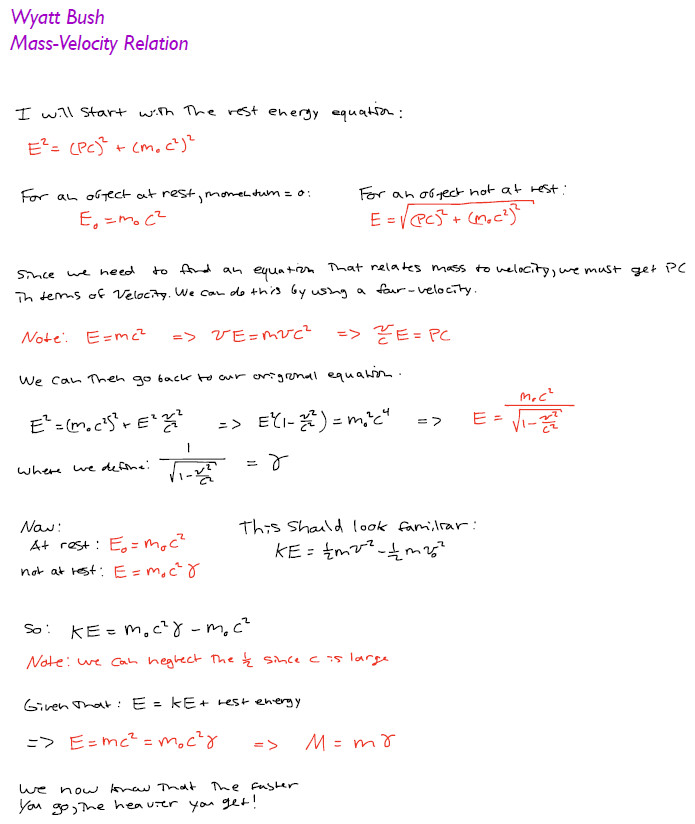 Wyatt Bush
Mass-Velocity Relation
I will start with The rest energy equation:
E² = (PC)² + (m₀c²)²
For an object at rest, momentum = 0: For an object not at rest:
E₀ = m₀c² E = √((PC)² + (m₀c²)²)
Since we need to find an equation That relates mass to velocity, we must get PC
in terms of Velocity. We can do this by using a four-velocity.
Note: E = mc² => vE = mvc² => v/c E = PC
We can Then go back to our original equation.
E² = (m₀c²)² + E² v²/c² => E²(1 - v²/c²) = m₀²c⁴ => E = m₀c²/√(1 - v²/c²)
where we define: 1/√(1 - v²/c²) = γ
Now: This Should look familiar:
At rest: E₀ = m₀c² KE = ½mv² - ½mv₀²
not at rest: E = m₀c²γ
So: KE = m₀c²γ - m₀c²
Note: we can neglect The ½ since c is large
Given That: E = KE + rest energy
=> E = mc² = m₀c²γ => M = mγ
We now know That The faster
You go, The heavier you get!